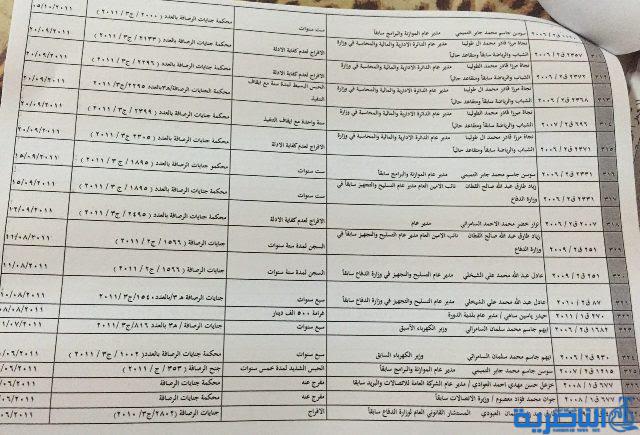 ٢٠٠٦ / ٢ق سوسن جاسم محمد جابر التميمي مدير عام الموازنة والبرامج سابقاً ست سنوات محكمة جنايات الرصافة بالعدد ( ٢٠٠٠ / ج٣ / ٢٠١١ ) ٠٥/١٠/٢٠١١
٣١١ ٢٣٥٧ ق٢ / ٢٠٠٦ نجاة مرزا قادر محمد ال طولينا مدير عام الدائرة الادارية والمالية والمحاسبة في وزارة الشباب والرياضة سابقاً ومتقاعد حالياً الافراج لعدم كفاية الادلة محكمة جنايات الرصافة بالعدد ( ٢١٣٣ / ج٣ / ٢٠١١ ) ٢٠/٠٩/٢٠١١
٣١٢ ٢٣٧٢ ق٢ / ٢٠٠٦ نجاة مرزا قادر محمد الطولينا مدير عام الدائرة الادارية والمالية والمحاسبة في وزارة الشباب والرياضة سابقاً ومتقاعد حالياً الافراج لعدم كفاية الادلة محكمة جنايات الرصافة بالعدد ( ٢٢٩٦ / ج٣ / ٢٠١١ ) ٢٠/٠٩/٢٠١١
٣١٣ ٢٣٦٨ ق٢ / ٢٠٠٦ نجاة مرزا قادر محمد ال طولينا مدير عام الدائرة الادارية والمالية والمحاسبة في وزارة الشباب والرياضة سابقاً ومتقاعد حالياً الحبس البسيط لمدة سنة مع ايقاف التنفيذ محكمة جنايات الرصافة/هـ٣بالعدد ٢٢٩٥/ج٣/٢٠١١ ٢٠/٠٩/٢٠١١
٣١٤ ٦٩٦ ق٢ / ٢٠٠٧ نجاة مرزا قادر محمد الطولينا مدير عام الدائرة الادارية والمالية والمحاسبة في وزارة الشباب والرياضة سابقاً ومتقاعد حالياً سنة واحدة مع ايقاف التنفيذ محكمة جنايات الرصافة بالعدد ( ٢٢٩٩ / ج٣ / ٢٠١١ ) ٢٠/٠٩/٢٠١١
٣١٥ ٢٣٧١ ق٢ / ٢٠٠٦ نجاة مرزا قادر محمد ال طولينا مدير عام الدائرة الادارية والمالية والمحاسبة في وزارة الشباب والرياضة سابقاً ومتقاعد حالياً الافراج لعدم كفاية الادلة محكمة جنايات الرصافة بالعدد ( ٢٣٠٥ / ج٣ / ٢٠١١ ) ٢٠/٠٩/٢٠١١
٣١٦ ٢٣٣١ ق٢ / ٢٠٠٦ سوسن جاسم محمد جابر التميمي مدير عام الموازنة والبرامج سابقاً ست سنوات محكمو جنايات الرصافة بالعدد ( ١٨٩٥ / ج٣ / ٢٠١١ ) ١٥/٠٩/٢٠١١
٣١٧ ٢٣٣١ ق٢ / ٢٠٠٦ زياد طارق عبد الله صالح القطان نائب الامين العام مدير عام التسليح والتجهيز سابقاً في وزارة الدفاع ست سنوات محكمة جنايات الرصافة بالعدد ( ١٨٩٥ / ج٣ / ٢٠١١ ) ١٥/٠٩/٢٠١١
٣١٨ ٢٠٠٧ ق٢ / ٢٠٠٦ نزار خضر محمد الاحمد السامرائي مدير عام الافراج لعدم كفاية الادلة محكمة جنايات الرصافة بالعدد ( ٢٤٩٥ / ج٣ / ٢٠١١ )
٢٥١ ق٢ / ٢٠٠٩ زياد طارق عبد الله صالح القطان نائب الامين العام مدير عام التسليح والتجهيز سابقاً في وزارة الدفاع السجن لمدة ستة سنوات جنايات الرصافة ( ١٥٦٦ / ج٢ / ٢٠١١ )
٣٢٠ ٢٥١ ق٢ / ٢٠٠٩ عادل عبد الله محمد علي الشيخلي مدير عام التسليح والتجهيز في وزارة الدفاع سابقاً السجن لمدة ستة سنوات جنايات الرصافة ( ١٥٦٦ / ج٢ / ٢٠١١ )
٨٧ ق٢ / ٢٠١٠ عادل عبد الله محمد علي الشيخلي مدير عام التسليح والتجهيز في وزارة الدفاع سابقاً سبع سنوات جنايات الرصافة هـ ٣/بالعدد ١٥٤٠/ج٣/٢٠١١
٢٧٠ ق١ / ٢٠١١ حيدر ياسين ساهي / مدير عام بلدية الدورة غرامة ٥٠٠ الف دينار
٣٢٣ ١٦٨٢ ق٢ / ٢٠٠٦ ايهم جاسم محمد سلمان السامرائي وزير الكهرباء الأسبق سبع سنوات جنايات الرصافة / هـ ٣ بالعدد ٨١٦/ج٣/٢٠١١
٣٢٤ ٩٣٠ ق٢ / ٢٠٠٦ ايهم جاسم محمد سلمان السامرائي وزير الكهرباء السابق سبع سنوات محكمة جنايات الرصافة بالعدد ( ١٠٠٢ / ج٣ / ٢٠١١ )
٣٢٥ ١٢١٥ ق٢ / ٢٠٠٧ سوسن جاسم محمد جابر التميمي مدير عام الموازنة والبرامج سابقاً الحبس الشديد لمدة خمس سنوات جنح الرصافة ( ٣٥٣ / ج / ٢٠١١ )
٦٧٧ ق١ / ٢٠٠٨ خزعل حسن مهدي احمد العوادي / مدير عام الشركة العامة للاتصالات والبريد سابقا مفرج عنه محكمة جنايات الرصافة
٦٧٧ ق١ / ٢٠٠٨ جوان محمد فؤاد معصوم / وزيرة الاتصالات سابقا مفرج عنه محكمة جنايات الرصافة
العبودي المستشار القانوني العام لوزارة الدفاع سابقاً الافراج جنايات الرصافة (٢٨٠٢/ج٣/٢٠١٠)
الناصرية